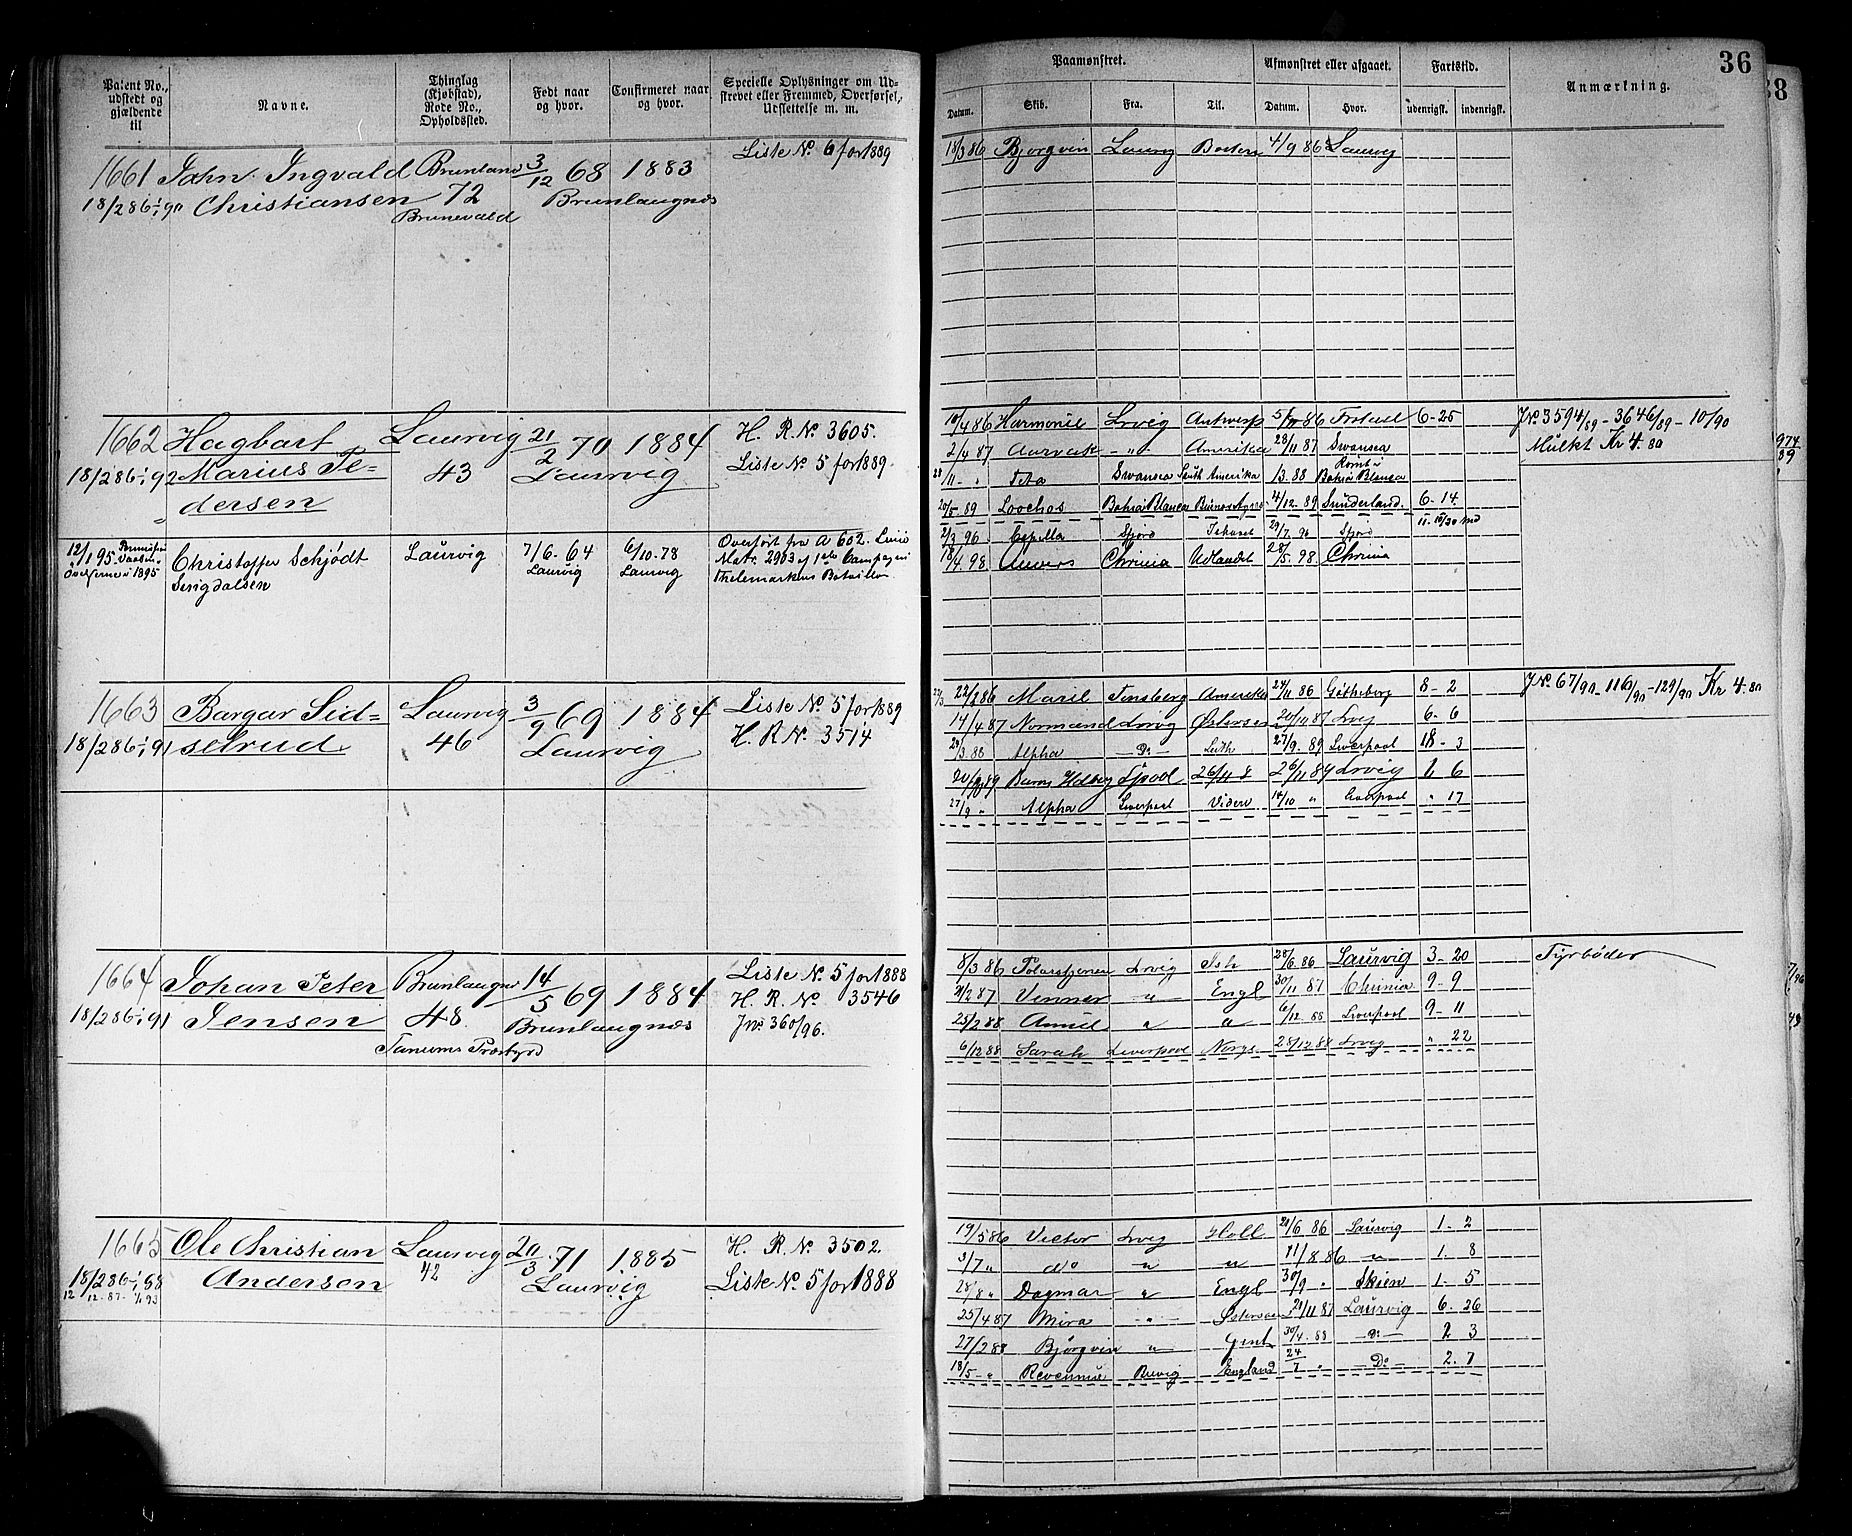 Patent No., udstedt og gjældende til
Navne.
Thinglag (Kjøbstad), Rode No., Opholdssted.
Født naar og hvor.
Confirmeret naar og hvor.
Specielle Oplysninger om Udstrevet eller Fremmed, Overførsel, Udslettelse m. m.
1661 John Ingvald Brunlans 3/12 68 1883 Liste No. 6 for 1889
18/2 86 1/1 90 Christiansen 72 Brunlaugnæs
Brunevald
1662 Hagbart Laurvig 21/2 70 1884 H. R. No. 3605.
18/2 86 1/1 92 Marius Pe- 43 Laurvig Liste No. 5 for 1889.
dersen
12/1 95 Christoffer Schjødt Laurvig 7/6. 64 6/10-78 Overført fra A 602.
1895 Laurvig Laurvig Matr. 2903 af 1ste Campagni
Thelemarkens Bataillon
1663 Bargar Sid= Laurvig 3/9 69 1884 Liste No. 5 for 1889
18/2 86 1/1 91 selrud 46 Laurvig H. R. No. 3514
1664 Johan Peter Brunlaugnæs 14/5 69 1884 Liste No. 5 for 1888
18/2 86 1/1 91 Jensen 48 Brunlaugnæs H. R. No. 3546
Tanums Præstgrd Jno. 360/96.
1665 Ole Christian Laurvig 20/3 71 1885 H. R. No. 3502.
18/2 86 1/1 88 Andersen 42 Laurvig Liste No. 5 for 1888
12/12-87-1/1 93
36
Paamønstret.
Afmønstret eller afgaaet.
Fartstid.
Anmærkning.
Datum. Skib. Fra. Til. Datum. Hvor. udenrigsk. indenrigsk.
18/3 86 Bjorgvin Laurvg Boston 4/9 86 Laurvig
10/4 86 Harmonie Lrvig Antwerp 86 6-25 JNo. 3594/89 - 3646/89 - 10/90
2/4 87 - " - Amerika 28/11 87 Swansea Mulkt Kr 4.80
28/11 - " Swansea Süth Amerika /3.88 Bahia Blanca
20/5.89 Loochos Bahia Blanca 4/12.89 Sünderland. 6-14
2/3 96 Capella Sfjord Ishavet 29/7. 96 Sfjord
18/4.98 Anvers Chrinia Udlandet 28/5.98 Chrinia
22/2 86 Maril Tønsberg Amerika 24/11 86 Gøtheborg 8-2 JNo. 67/90 - 116/90 - 129/90 Kr 4.80
14/4 87 Normand Lrvg Østersøen 87 Lrvg 6-6
29/3.88 Alpha - Do - Leith 27/9.89 Liverpool 18-3
89 26/11 Lrvig 1 6
27/9 " Alpha Liverpool Videre 14/10 " Liverpool " 17
8/3 86 Polarstjernen Lrvig Ish 28/6.86 Laurvig 3.20 Fyrbøder
2/2 87 Vennor " Engl 30/11 87 Chrinia 9-9
25/2 88 " " 6/12 88 Liverpool 9-11
6/12 88 Sarah Liverpool Norge 28/12.88 Lrvig " 22
19/5 86 Victor Lrvig Holl 20/6 86 Laurvig 1.2
3/7 " do " " 11/8.86 " 1.8
28/8 " Dagmar " Engl 30/9 " Skien 1.5
25/4 87 Mira - " - 87 Laurvig 6.26
27/2 88 Bjørgvin " Gent 30/4.88 - Do - 2 3
18/5 - " Revennue Brevig England 24/7 " - Do - 2.7